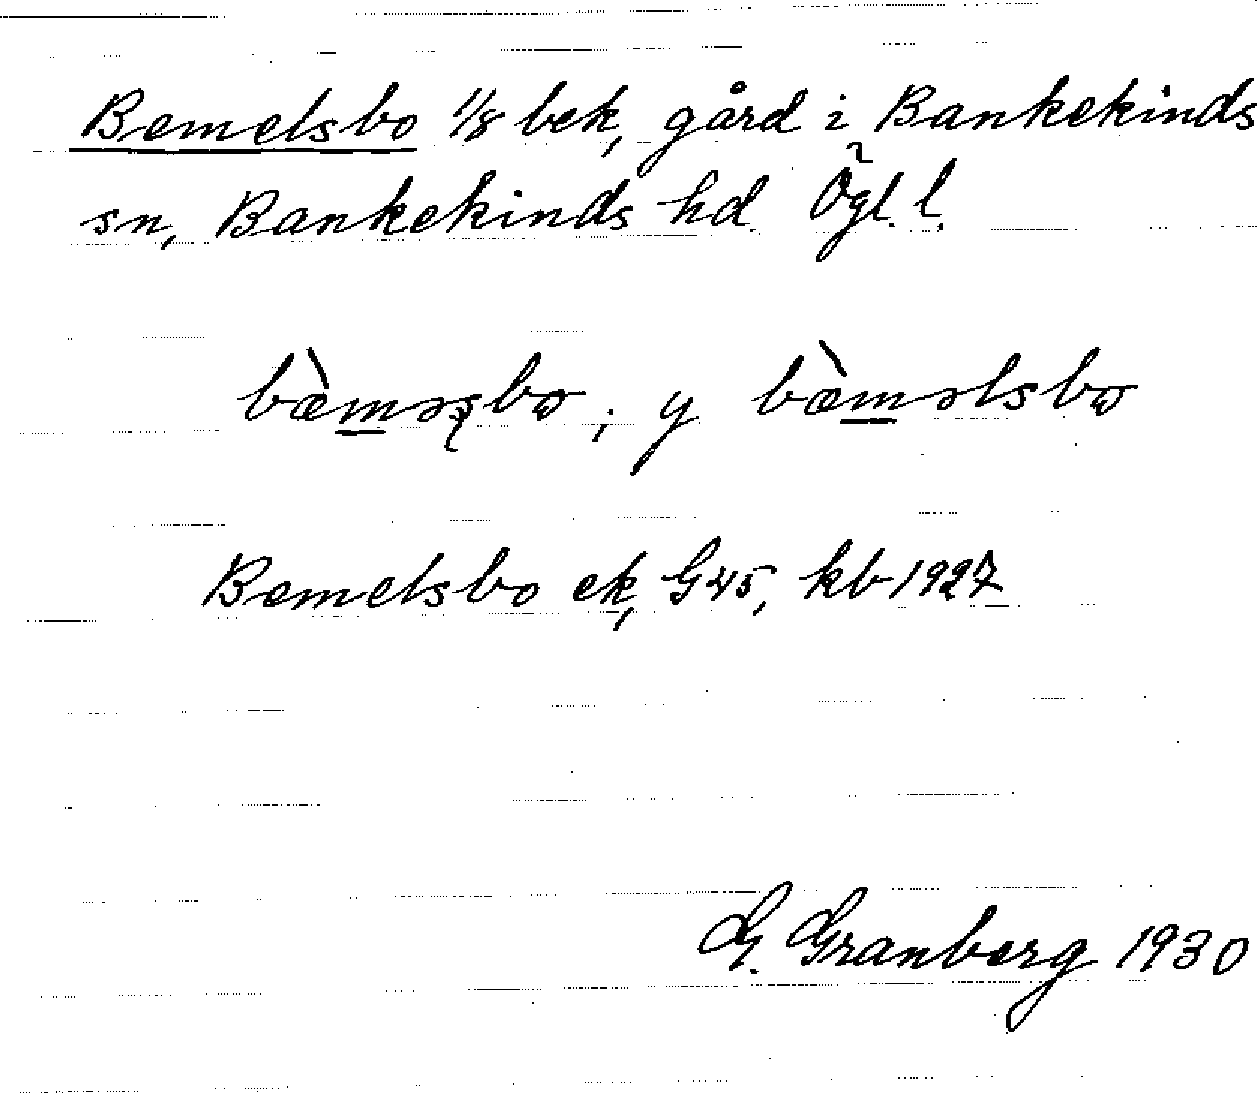 Bemelsbo 1/8 bek, gård i Bankekinds
sn, Bankekinds hd. Ögl. l.
bæ̀mɘsbɷ; y bæ̀mɘlsbɷ
Bemelsbo ek, G45, kb 1927
G. Granberg 1930